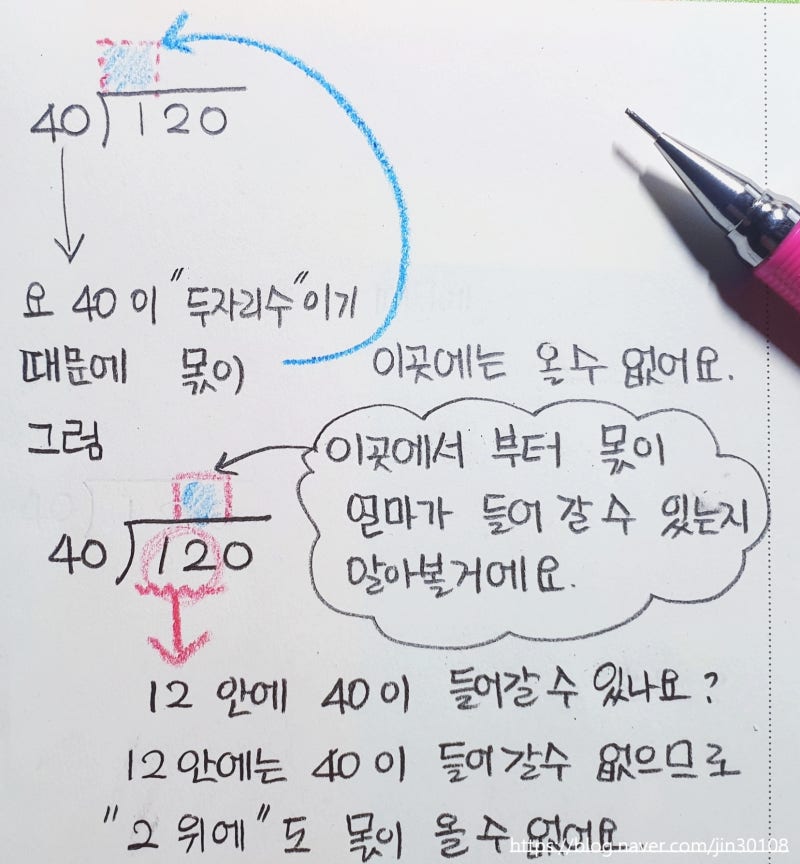 40)120
요 40 이 "두자리수"이기
때문에 몫이 이곳에는 올 수 없어요.
그럼
이곳에서 부터 몫이
얼마가 들어 갈 수 있는지
알아볼거에요.
40)120
12 안에 40이 들어갈 수 있나요?
12 안에는 40 이 들어갈수 없으므로
"2 위에"도 몫이 올 수 없어요
https://blog.naver.com/jin30108